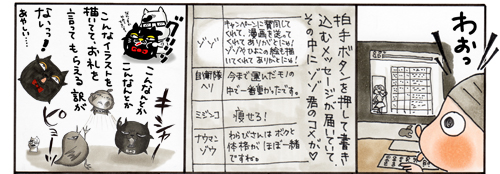 わあっ
拍手ボタンを押して書き
込むメッセージが届いていて、
その中に、ゾゾ君のコメが♡
ゾゾ
キャンペーンに賛同して
くれて、漫画を送って
くれてありがとにゅ!
ゾゾやひよこの絵も描
いてくれてありがとにゅ!
自衛隊
ヘリ
今まで運んだモノの
中で一番重かったです。
ミジンコ
痩せろ!
ナウマン
ゾウ
わらびさんはボクと
体格がほぼ一緒
ですね。
こんなのとか
こんなのとか
こんなイラストを
描いててお礼を
言ってもらえる訳が
ないっ!
あやしい…
ピヨー